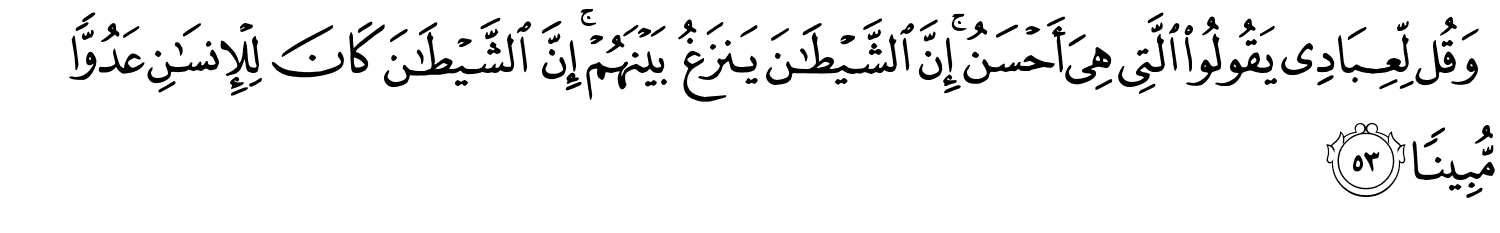 وَقُل لِّعِبَادِى يَقُولُوا۟ ٱلَّتِى هِىَ أَحْسَنُ ۚ إِنَّ ٱلشَّيْطَـٰنَ يَنزَغُ بَيْنَهُمْ ۚ إِنَّ ٱلشَّيْطَـٰنَ كَانَ لِلْإِنسَـٰنِ عَدُوًّا
مُّبِينًا ٥٣